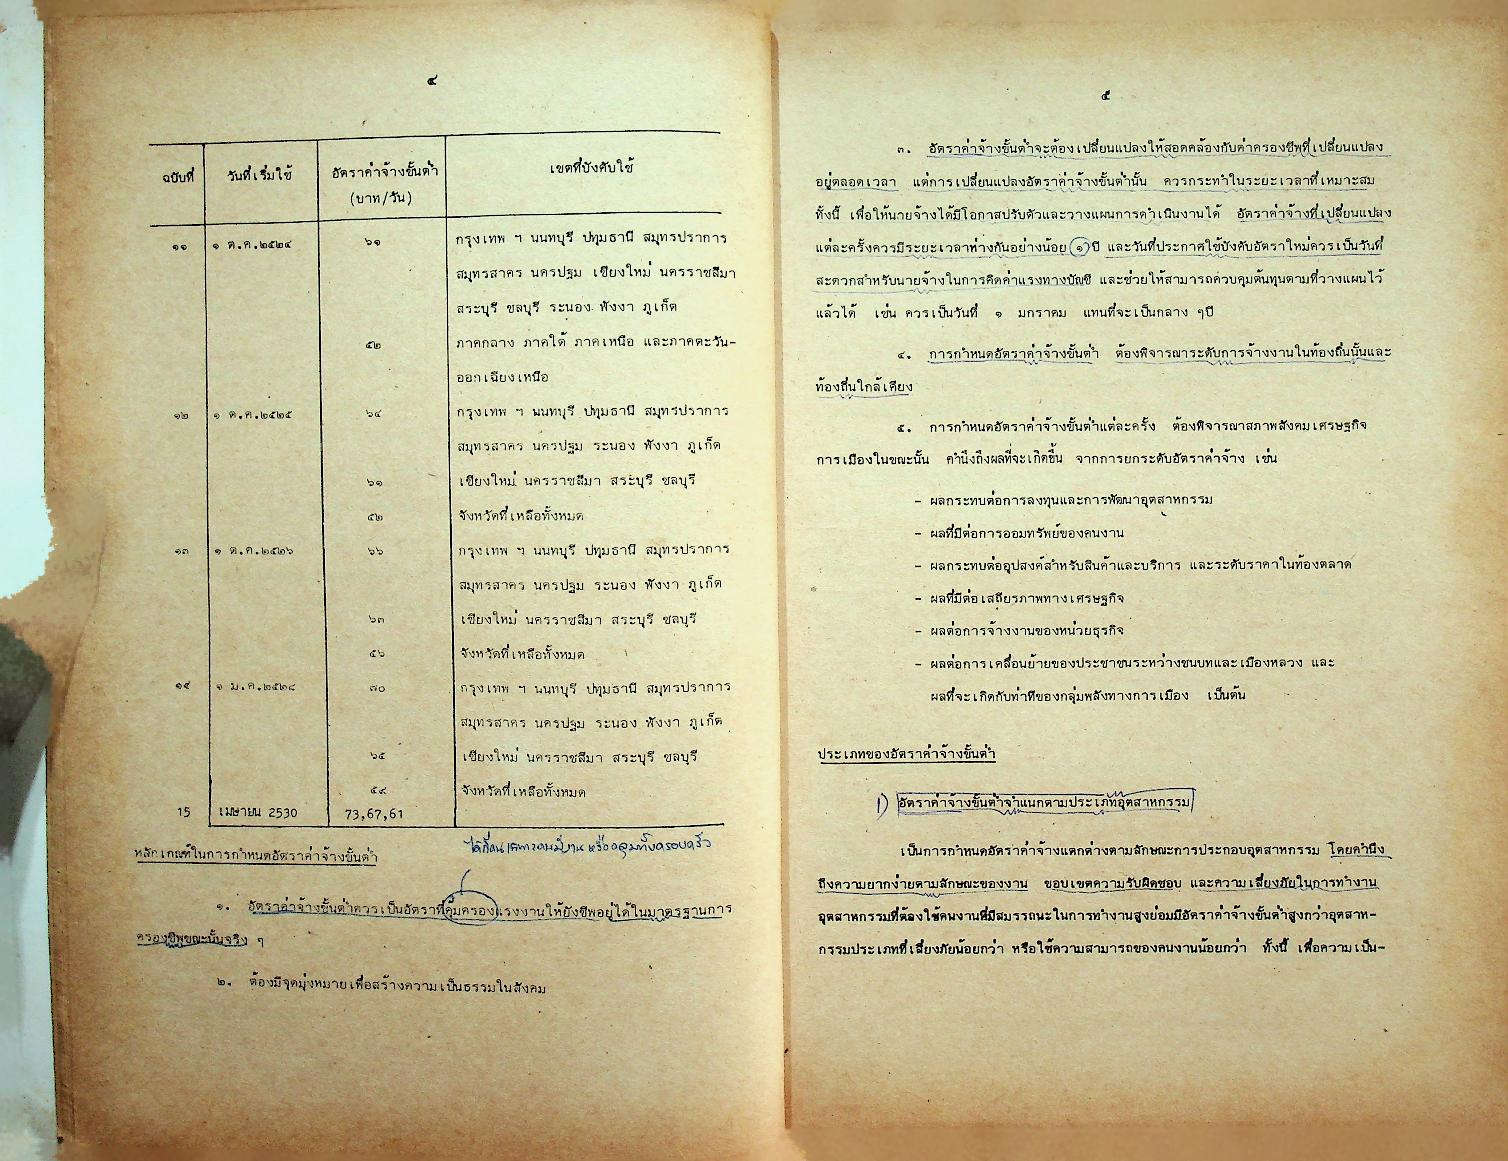 ๔
ฉบับที่ วันที่เริ่มใช้ อัตราค่าจ้างขั้นต่ำ เขตที่บังคับใช้
(บาท/วัน)
๑๑ ๑ ต.ค.๒๕๒๔ ๖๑ กรุงเทพ ฯ นนทบุรี ปทุมธานี สมุทรปราการ
สมุทรสาคร นครปฐม เชียงใหม่ นครราชสีมา
สระบุรี ชลบุรี ระนอง พังงา ภูเก็ต
๕๒ ภาคกลาง ภาคใต้ ภาคเหนือ และภาคตะวัน-
ออกเฉียงเหนือ
๑๒ ๑ ต.ค.๒๕๒๕ ๖๔ กรุงเทพ ฯ นนทบุรี ปทุมธานี สมุทรปราการ
สมุทรสาคร นครปฐม ระนอง พังงา ภูเก็ต
๖๑ เชียงใหม่ นครราชสีมา สระบุรี ชลบุรี
๕๒ จังหวัดที่เหลือทั้งหมด
๑๓ ๑ ต.ค.๒๕๒๖ ๖๖ กรุงเทพ ฯ นนทบุรี ปทุมธานี สมุทรปราการ
สมุทรสาคร นครปฐม ระนอง พังงา ภูเก็ต
๖๓ เชียงใหม่ นครราชสีมา สระบุรี ชลบุรี
๕๖ จังหวัดที่เหลือทั้งหมด
๑๔ ๑ ม.ค.๒๕๒๘ ๗๐ กรุงเทพ ฯ นนทบุรี ปทุมธานี สมุทรปราการ
สมุทรสาคร นครปฐม ระนอง พังงา ภูเก็ต
๖๕ เชียงใหม่ นครราชสีมา สระบุรี ชลบุรี
๕๙ จังหวัดที่เหลือทั้งหมด
15 เมษายน 2530 73,67,61
หลักเกณฑ์ในการกำหนดอัตราค่าจ้างขั้นต่ำ
หรือคลุมทั้งครอบครัว
๑. อัตราค่าจ้างขั้นต่ำควรเป็นอัตราที่คุ้มครองแรงงานให้ยังชีพอยู่ได้ในมาตรฐานการ
ครองชีพขณะนั้นจริง ๆ
๒. ต้องมีจุดมุ่งหมายเพื่อสร้างความเป็นธรรมในสังคม
๕
๓. อัตราค่าจ้างขั้นต่ำจะต้องเปลี่ยนแปลงให้สอดคล้องกับค่าครองชีพที่เปลี่ยนแปลง
อยู่ตลอดเวลา แต่การเปลี่ยนแปลงอัตราค่าจ้างขั้นต่ำนั้น ควรกระทำในระยะเวลาที่เหมาะสม
ทั้งนี้ เพื่อให้นายจ้างได้มีโอกาสปรับตัวและวางแผนการดำเนินงานได้ อัตราค่าจ้างที่เปลี่ยนแปลง
แต่ละครั้งควรมีระยะเวลาห่างกันอย่างน้อย ๑ ปี และวันที่ประกาศใช้บังคับอัตราใหม่ควรเป็นวันที่
สะดวกสำหรับนายจ้างในการคิดค่าแรงทางบัญชี และช่วยให้สามารถควบคุมต้นทุนตามที่วางแผนไว้
แล้วได้ เช่น ควรเป็นวันที่ ๑ มกราคม แทนที่จะเป็นกลาง ๆปี
๔. การกำหนดอัตราค่าจ้างขั้นต่ำ ต้องพิจารณาระดับการจ้างงานในท้องถิ่นนั้นและ
ท้องถิ่นใกล้เคียง
๕. การกำหนดอัตราค่าจ้างขั้นต่ำแต่ละครั้ง ต้องพิจารณาสภาพสังคมเศรษฐกิจ
การเมืองในขณะนั้น คำนึงถึงผลที่จะเกิดขึ้น จากการยกระดับอัตราค่าจ้าง เช่น
- ผลกระทบต่อการลงทุนและการพัฒนาอุตสาหกรรม
- ผลที่มีต่อการออมทรัพย์ของคนงาน
- ผลกระทบต่ออุปสงค์สำหรับสินค้าและบริการ และระดับราคาในท้องตลาด
- ผลที่มีต่อเสถียรภาพทางเศรษฐกิจ
- ผลต่อการจ้างงานของหน่วยธุรกิจ
- ผลต่อการเคลื่อนย้ายของประชาชนระหว่างชนบทและเมืองหลวง และ
ผลที่จะเกิดกับท่าทีของกลุ่มพลังทางการเมือง เป็นต้น
ประเภทของอัตราค่าจ้างขั้นต่ำ
1) อัตราค่าจ้างขั้นต่ำจำแนกตามประเภทอุตสาหกรรม
เป็นการกำหนดอัตราค่าจ้างแตกต่างตามลักษณะการประกอบอุตสาหกรรม โดยคำนึง
ถึงความยากง่ายตามลักษณะของงาน ขอบเขตความรับผิดชอบ และความเสี่ยงภัยในการทำงาน
อุตสาหกรรมที่ต้องใช้คนงานที่มีสมรรถนะในการทำงานสูงย่อมมีอัตราค่าจ้างขั้นต่ำสูงกว่าอุตสาห-
กรรมประเภทที่เสี่ยงภัยน้อยกว่า หรือใช้ความสามารถของคนงานน้อยกว่า ทั้งนี้ เพื่อความเป็น-